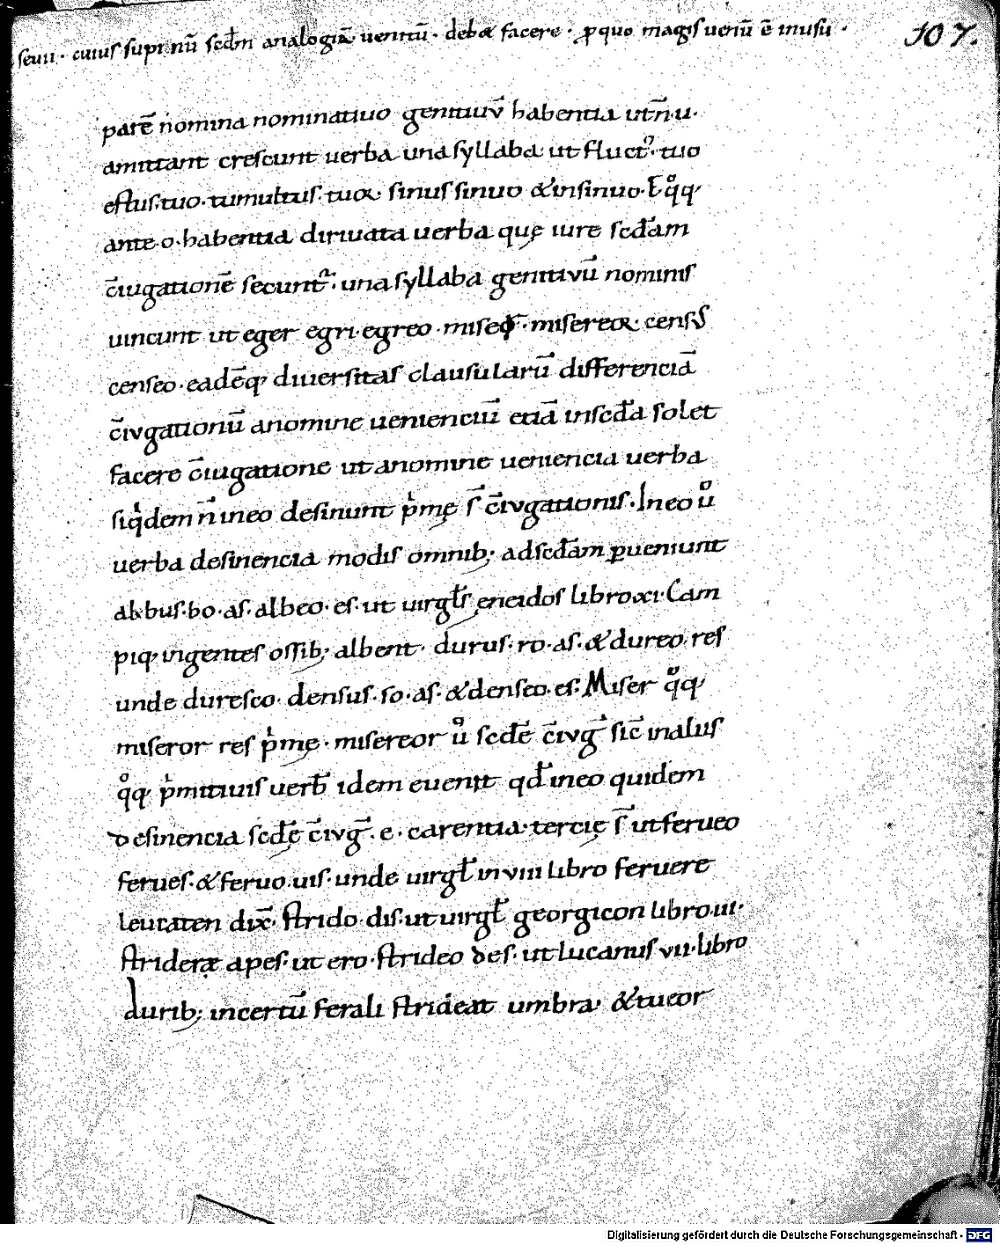 seuii · cuius supinū scdm̄ analogiā uentū · deb& facere · p quo magis uenū ē inusu ·
107.
parē nomina nominatiuo genitiuū habentia ut n̄ u·
amittant crescunt uerba una syllaba ut fluct᾿· tuo
estus·tuo·tumultus·tuor sinus sinuo &insinuo· E qͦq;
ante·o·habentia diriuata uerba quę iure scdam
c̄iugationē secunt᾿· una syllaba genitiuū nominis
uincunt ut eger egri·egreo·miser·misereor census
censeo·eadēq; diuersitas clausularū differenciā
c̄iugationū anomine uenienciū etiā inscd̄a solet
facere c̄iugatione ut anomine ueniencia uerba
siqͥdem n̄ ineo desinunt pͥmę s̄ c̄iugationis· In eo uͦ
uerba desinencia modis omnib; adscd̄am ꝑueniunt
albus·bo·as·albeo·es·ut uirgłs ęneidos libro xi·Cam
piq; ingentes ossib; albent· durus·ro·as·&dureo res
unde duresco· densus·so·as·&denseo·es· Miser qͦq;
miseror res pͥmę· misereor uͦ scdē c̄iuḡ sic̄ inalus
qͦq; pͥmitiuis uerb̄ idem euenit qd̄ ineo quidem
desinencia scdę̄ c̄iuḡ·e·carentia·tercię s̄ ut ferueo
ferues·&feruo·uis·unde uirgł in viii libro feruere
leucaten dix̄· strido·dis·ut uirgł georgicon libro·iii·
strideræ apes·ut ero·strideo des·ut lucanus vii·libro
durib; incertū ferali strideat umbra· &tueor
Digitalisierung gefördert durch die Deutsche Forschungsgemeinschaft · DFG